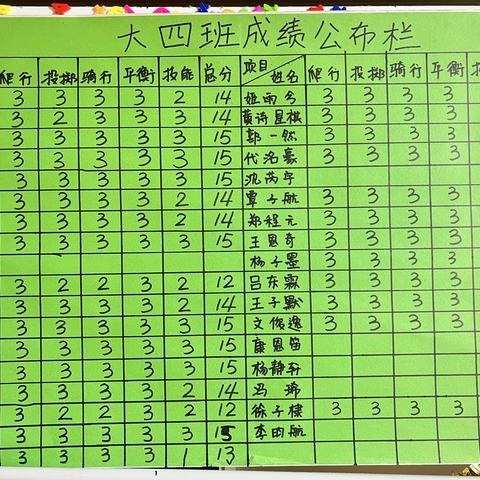 大四班成绩公布栏
爬行 投掷 骑行 平衡 技能 总分 项目 姓名 爬行 投掷 骑行 平衡
3 3 3 3 2 14 姬雨今 3 3 3 3
3 2 3 3 3 14 黄诗星棋 3 3 3 3
3 3 3 3 3 15 郭一然 3 3 3 3
3 3 3 3 3 15 代洺豪 3 3 3 3
3 3 3 3 3 15 沈芮宇
3 3 3 3 2 14 覃子航 3 3 3 3
3 3 3 3 2 14 郑程元 3 3 3 3
3 3 3 3 3 15 王恩奇 3 3 3 3
杨子墨 3 3 3 3
3 2 2 3 2 12 吕东霖 3 3 3 3
3 3 3 3 2 14 王子默 3 3 3 3
3 3 3 3 3 15 文俊逸 3 3 3 3
3 3 3 3 3 15 康恩笛
3 3 3 3 3 15 杨静轩
3 3 3 3 2 14 冯
3 2 2 3 2 12 徐子棣 3 3 3 3
3 3 3 3 3 15 李昀航
3 3 3 3 1 13